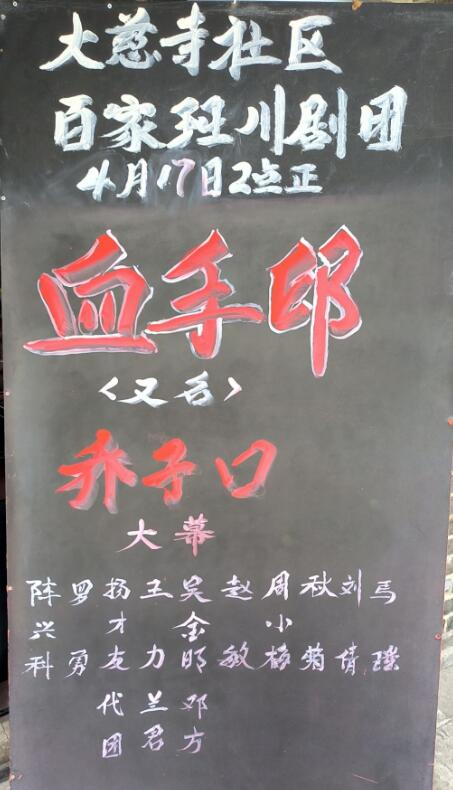 大慈寺社区
百家班川剧团
4月17日2点正
血手印
<又名>
乔子口
大幕
陈兴科
罗勇
扬才友
王力
吴金明
赵敏
周小梅
秋菊
刘倩
马
代团
兰君
邓方